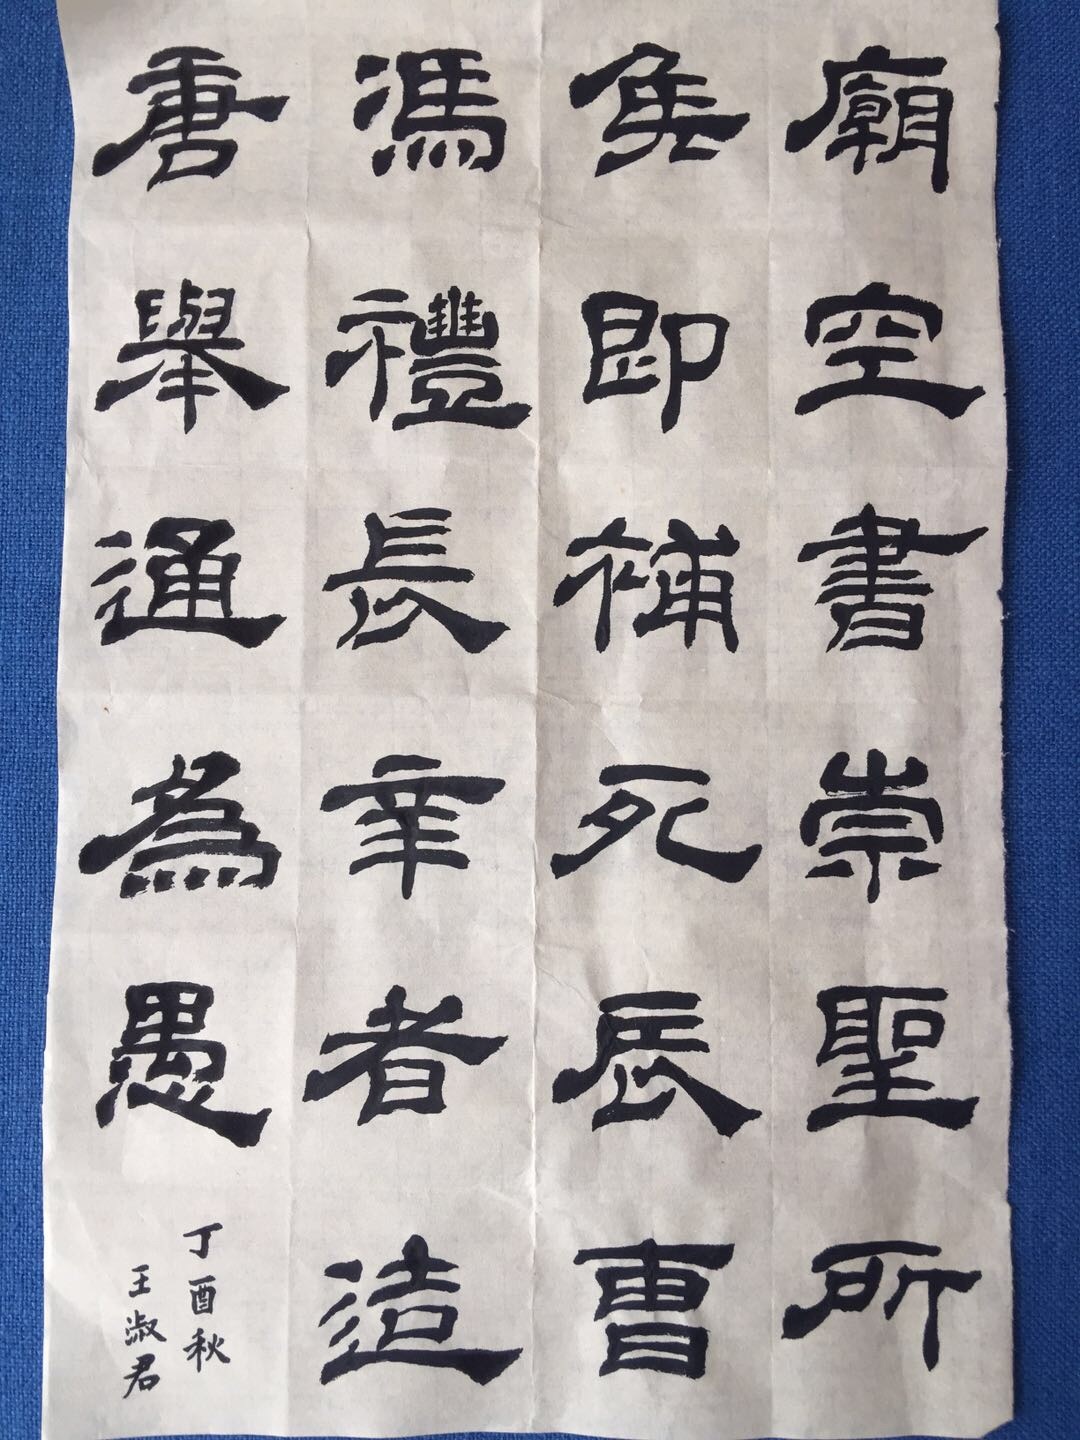 廟空書崇聖所
即補死辰曹
馮禮長幸者造
唐舉通為愚
丁酉秋
王淑君